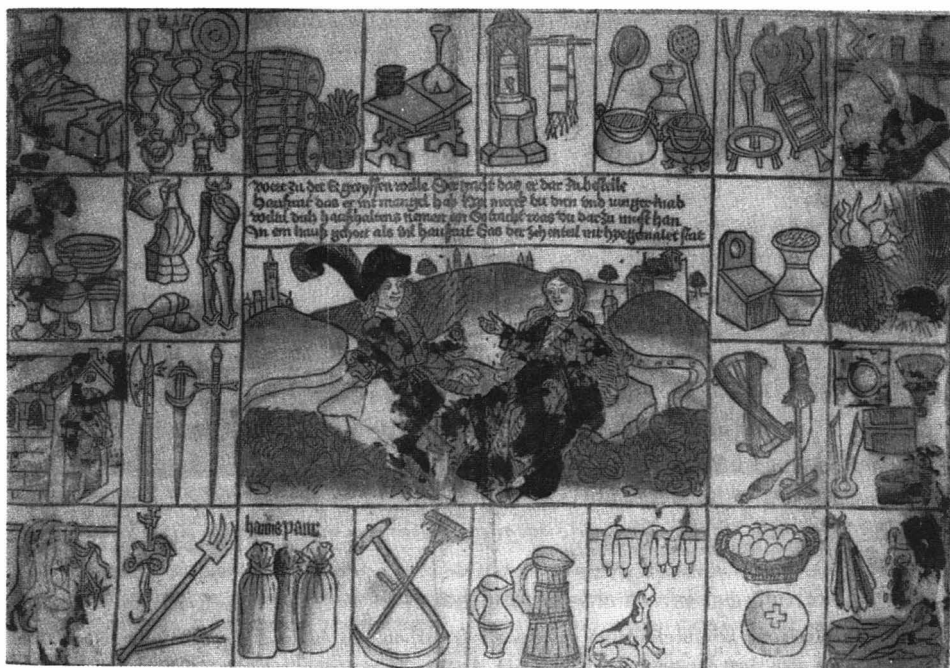 Wer zu der E greyffen welle Der tracht das er dar zu bestelle
Hausrat das er nit mangel hab Hye merck du diern vnd iunger knab
Weltu dich haushaltens nemen an So tracht was du dar zu must han
In ein haus gehort als vil hausrat Das der zehenteil nit hye gemalet stat
hanns paur